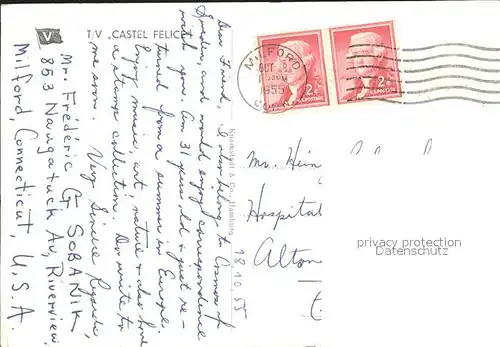 V
T/V „CASTEL FELICE"
Dear Friend, I also belong to Cosmos of
Sweden, and would enjoy correspondence
with you. Am 31 years old & just re-
turned from a summer in Europe.
Enjoy music, art, nature & also have
a stamp collection. Do write to
me soon. Very Sincere Regards,
Mr. Frédéric G. SOBANIK,
853 Naugatuck Av, Riverview,
Milford, Connecticut, U.S.A.
Knackstedt & Co., Hamburg
18.10.55
MILFORD
OCT 8
1955
CONN
2¢
U.S. POSTAGE
2¢
U.S. POSTAGE
Mr. Hein
Hospital
Alton
privacy protection
Datenschutz